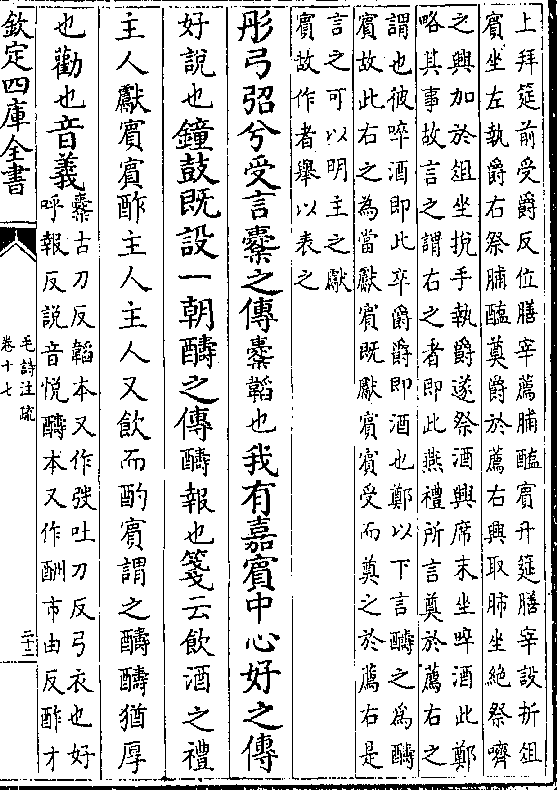 上拜筵前受爵反位膳宰薦脯醢賓升筵膳宰設折俎
賓坐左執爵右祭脯醢奠爵於薦右興取肺坐絶祭嚌
之興加於俎坐挩手執爵遂祭酒興席末坐啐酒此鄭
略其事故言之謂右之者即此燕禮所言奠於薦右之
謂也彼啐酒即此卒爵爵即酒也鄭以下言醻之為醻
賓故此右之為當獻賓既獻賓賓受而奠之於薦右是
言之可以明主之獻
賓故作者舉以表之
彤弓弨兮受言櫜之傳櫜韜也我有嘉賓中心好之傳
好說也鐘鼓既設一朝醻之傳醻報也箋云飲酒之禮
主人獻賓賓酢主人主人又飲而酌賓謂之醻醻猶厚
也勸也音義櫜古刀反韜本又作弢吐刀反弓衣也好
呼報反説音悦醻本又作酬市由反酢才
欽定四庫全書
毛詩注疏
卷十七
二十二